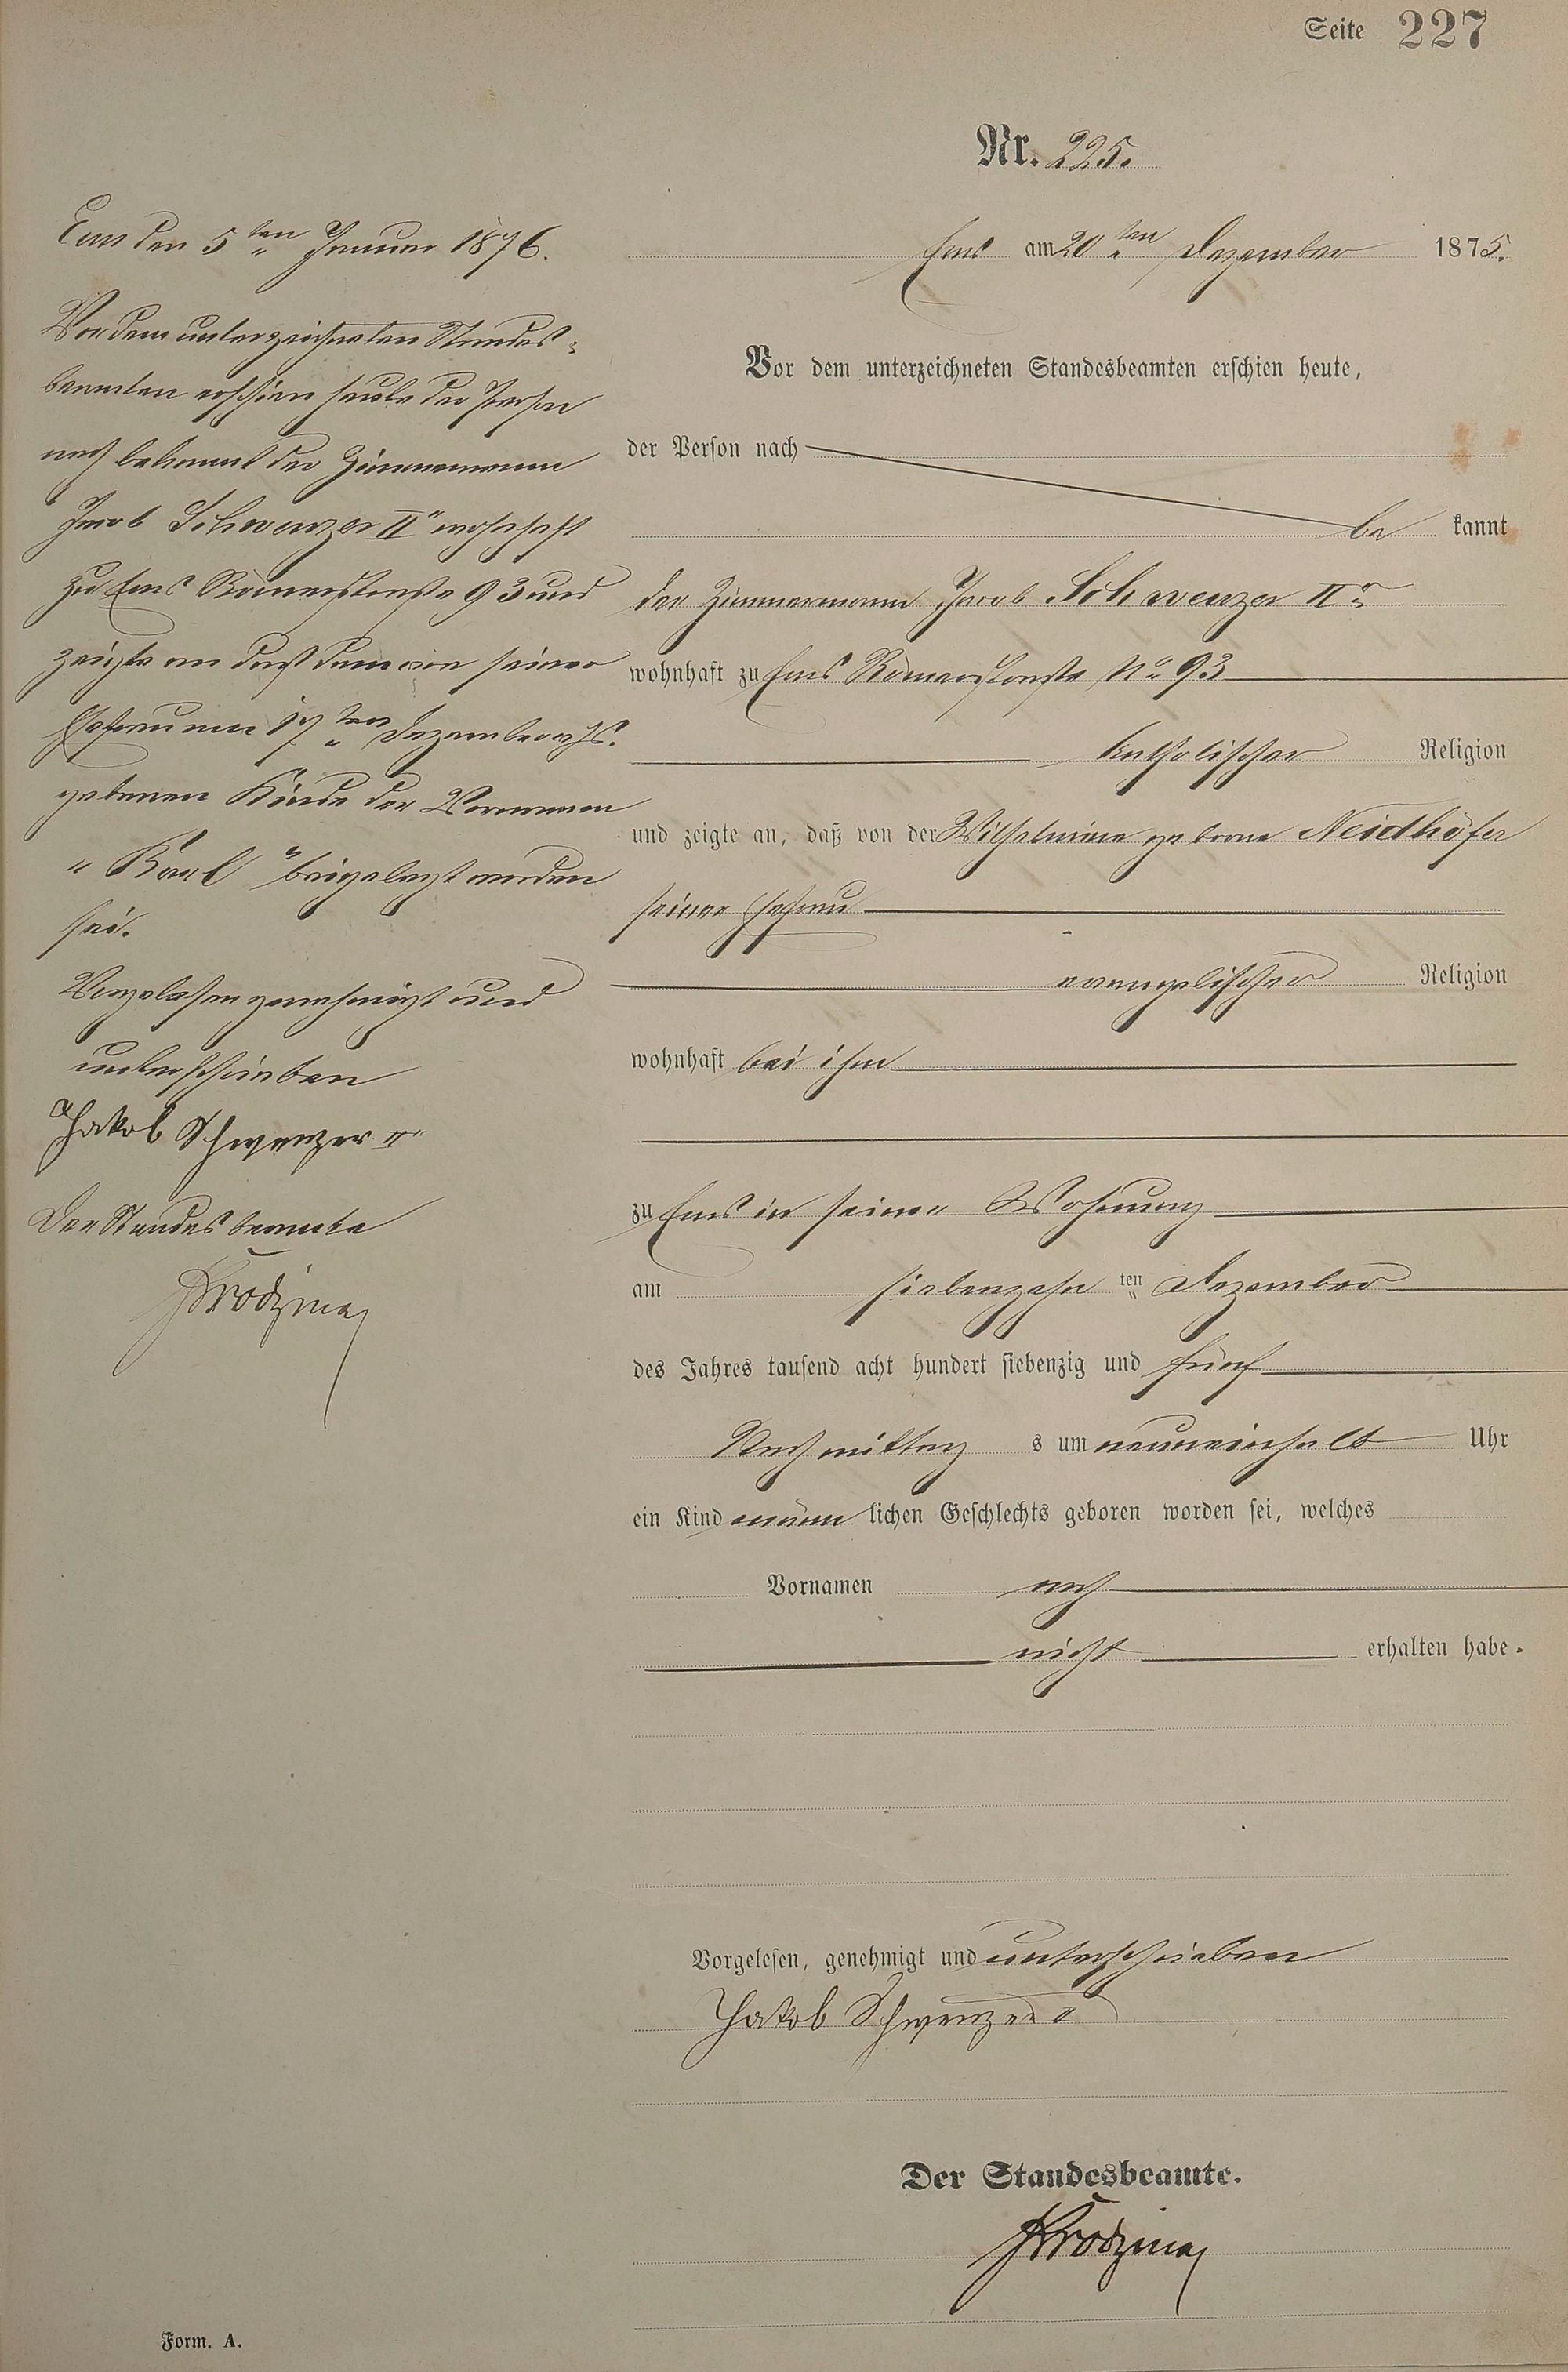 Seite 227
Nr. 225.
Ems den 5ten Januar 1876.
Vor dem unterzeichneten Standes-
beamten erschien heute der Person
nach bekannt der Zimmermann
Jacob Schwenzer IIr wohnhaft
zu Ems Römerstraße 93 und
zeigte an daß dem von seiner
Ehefrau am 17ten Dezember v. Js.
geborenen Kinde der Vornamen
"Karl" beigelegt worden
sei.
Vorgelesen genehmigt und
unterschrieben
Jakob Schwenzer IIr
Der Standesbeamte
Ems am 20ten Dezember 1875.
Vor dem unterzeichneten Standesbeamten erschien heute,
der Person nach
be kannt
der Zimmermann Jacob Schwenzer IIr
wohnhaft zu Ems Römerstraße No 93
katholischer Religion
und zeigte an, daß von der Wilhelmine geborne Neidhöfer
seiner Ehefrau
evangelischer Religion
wohnhaft bei ihm
zu Ems in seiner Wohnung
am siebenzehn ten Dezember
des Jahres tausend acht hundert siebenzig und fünf
Nachmittag s um neuneinhalb Uhr
ein Kind männ lichen Geschlechts geboren worden sei, welches
Vornamen noch
nicht erhalten habe.
Vorgelesen, genehmigt und unterschrieben
Jakob Schwenzer II
Der Standesbeamte.
Form. A.